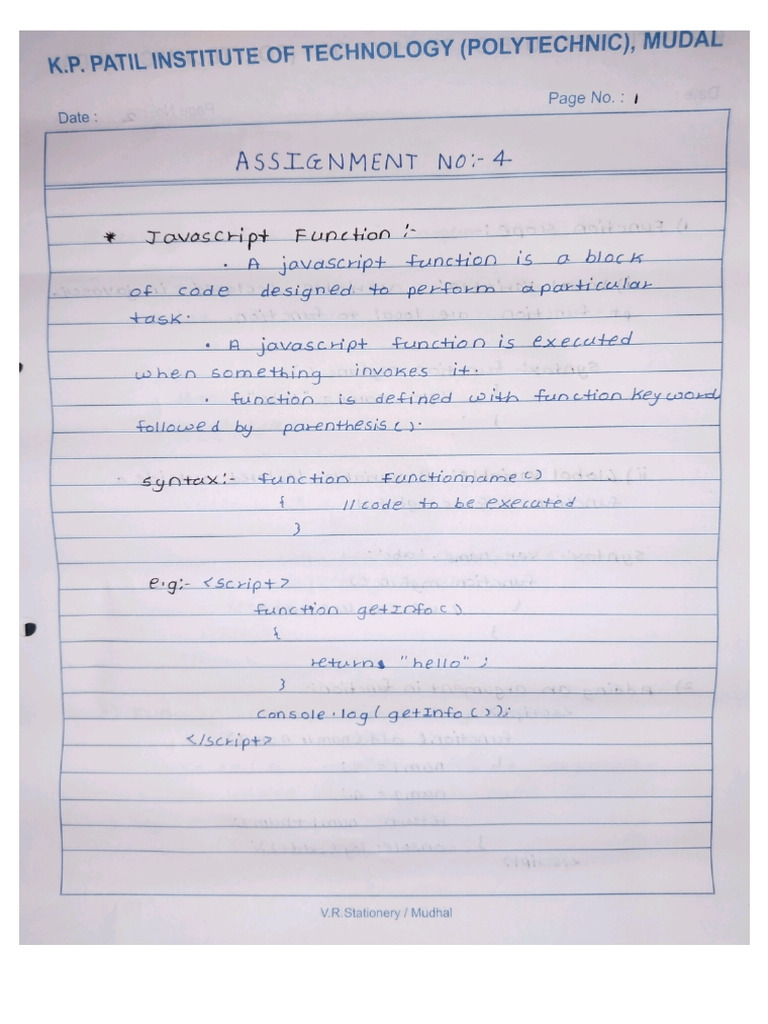 K.P. PATIL INSTITUTE OF TECHNOLOGY (POLYTECHNIC), MUDAL
Page No. : 1
Date :
ASSIGNMENT NO:- 4
* Javascript Function :-
• A javascript function is a block
of code designed to perform a particular
task.
• A javascript function is executed
when something invokes it.
• function is defined with function keyword
followed by parenthesis().
syntax:- function Functionname()
{ //code to be executed
}
e.g:- <script>
function getInfo()
{
returns "hello" ;
}
console.log( getInfo ());
</script>
V.R.Stationery / Mudhal